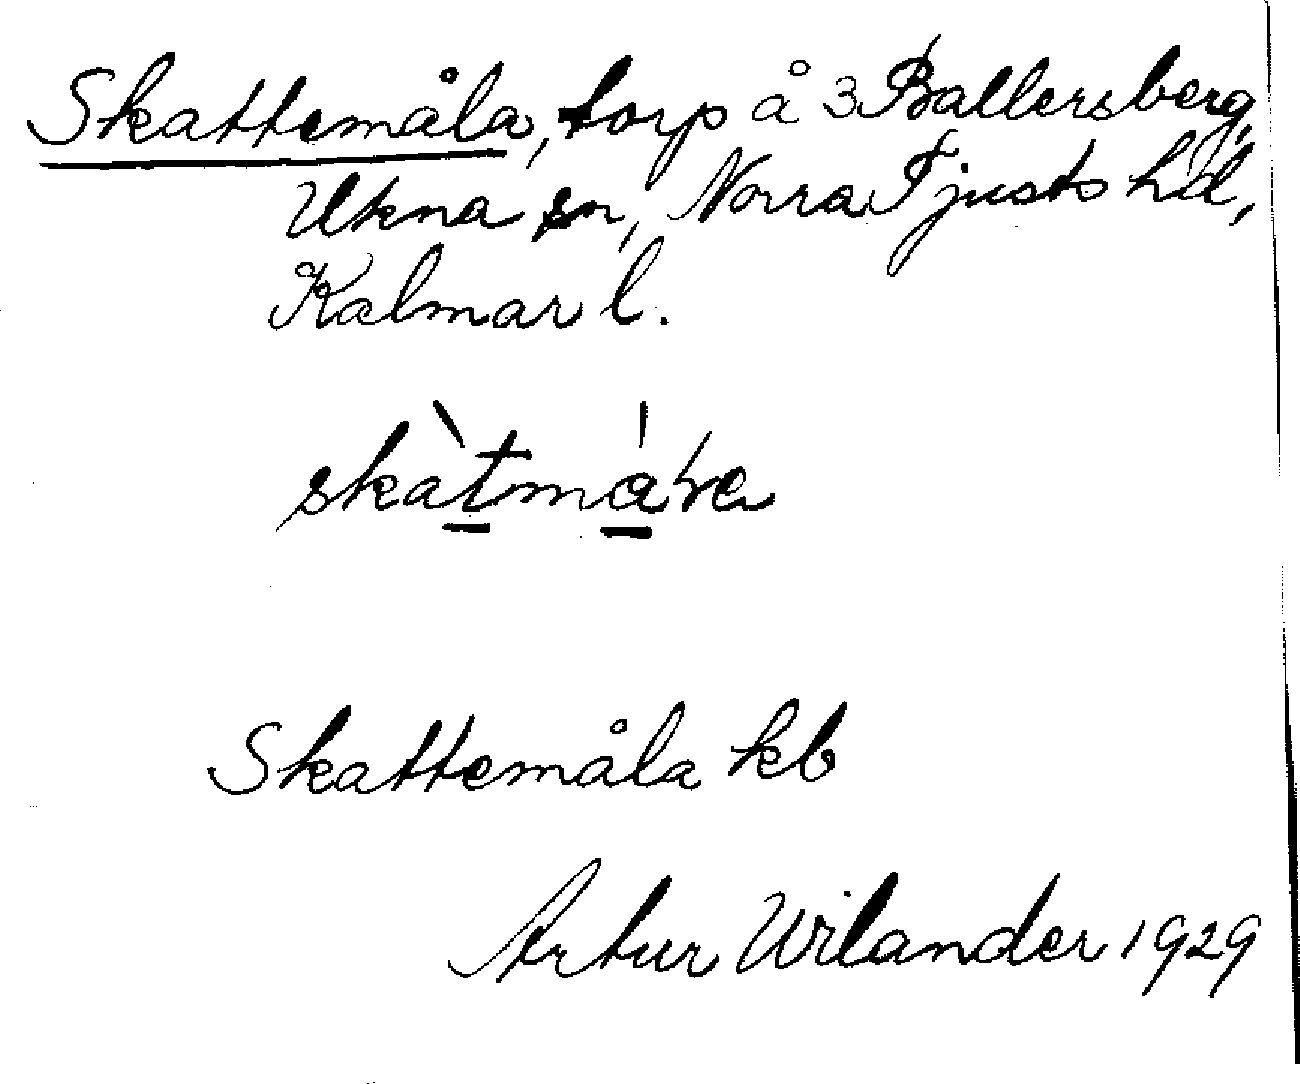 Skattemåla, torp å 3 Ballersberg,
Ukna sn, Norra Tjusts hd,
Kalmar l.
skàtmá
Skattemåla kb
Artur Wilander 1929